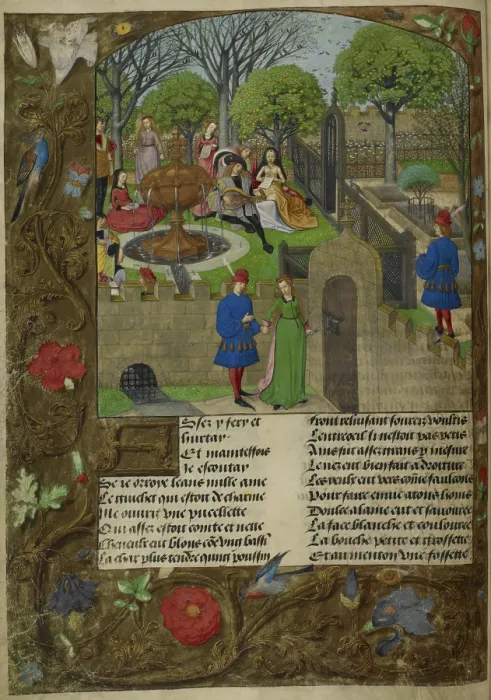 Ssez y fery et
hurtay
Et maintesfois
je escoutay
Se je orroye leans mille ame
Le guichet qui estoit de charme
Me ouvrit une pucellette
Qui assez estoit cointe et nette
Cheveulx eut blons
La char plus tendre quung poussin
Front reluisant sourcilz voultis
Lentroeil si nestoit pas petis
Ains fut assez grans p mesure
Le nez eut bien fait a droiture
Les yeulx eut vers come faulcons
Pour faire envie a tous homs
Doulce alaine eut et savouree
La face blanche et coulouree
La bouche petite et grossette
Et au menton une fossette